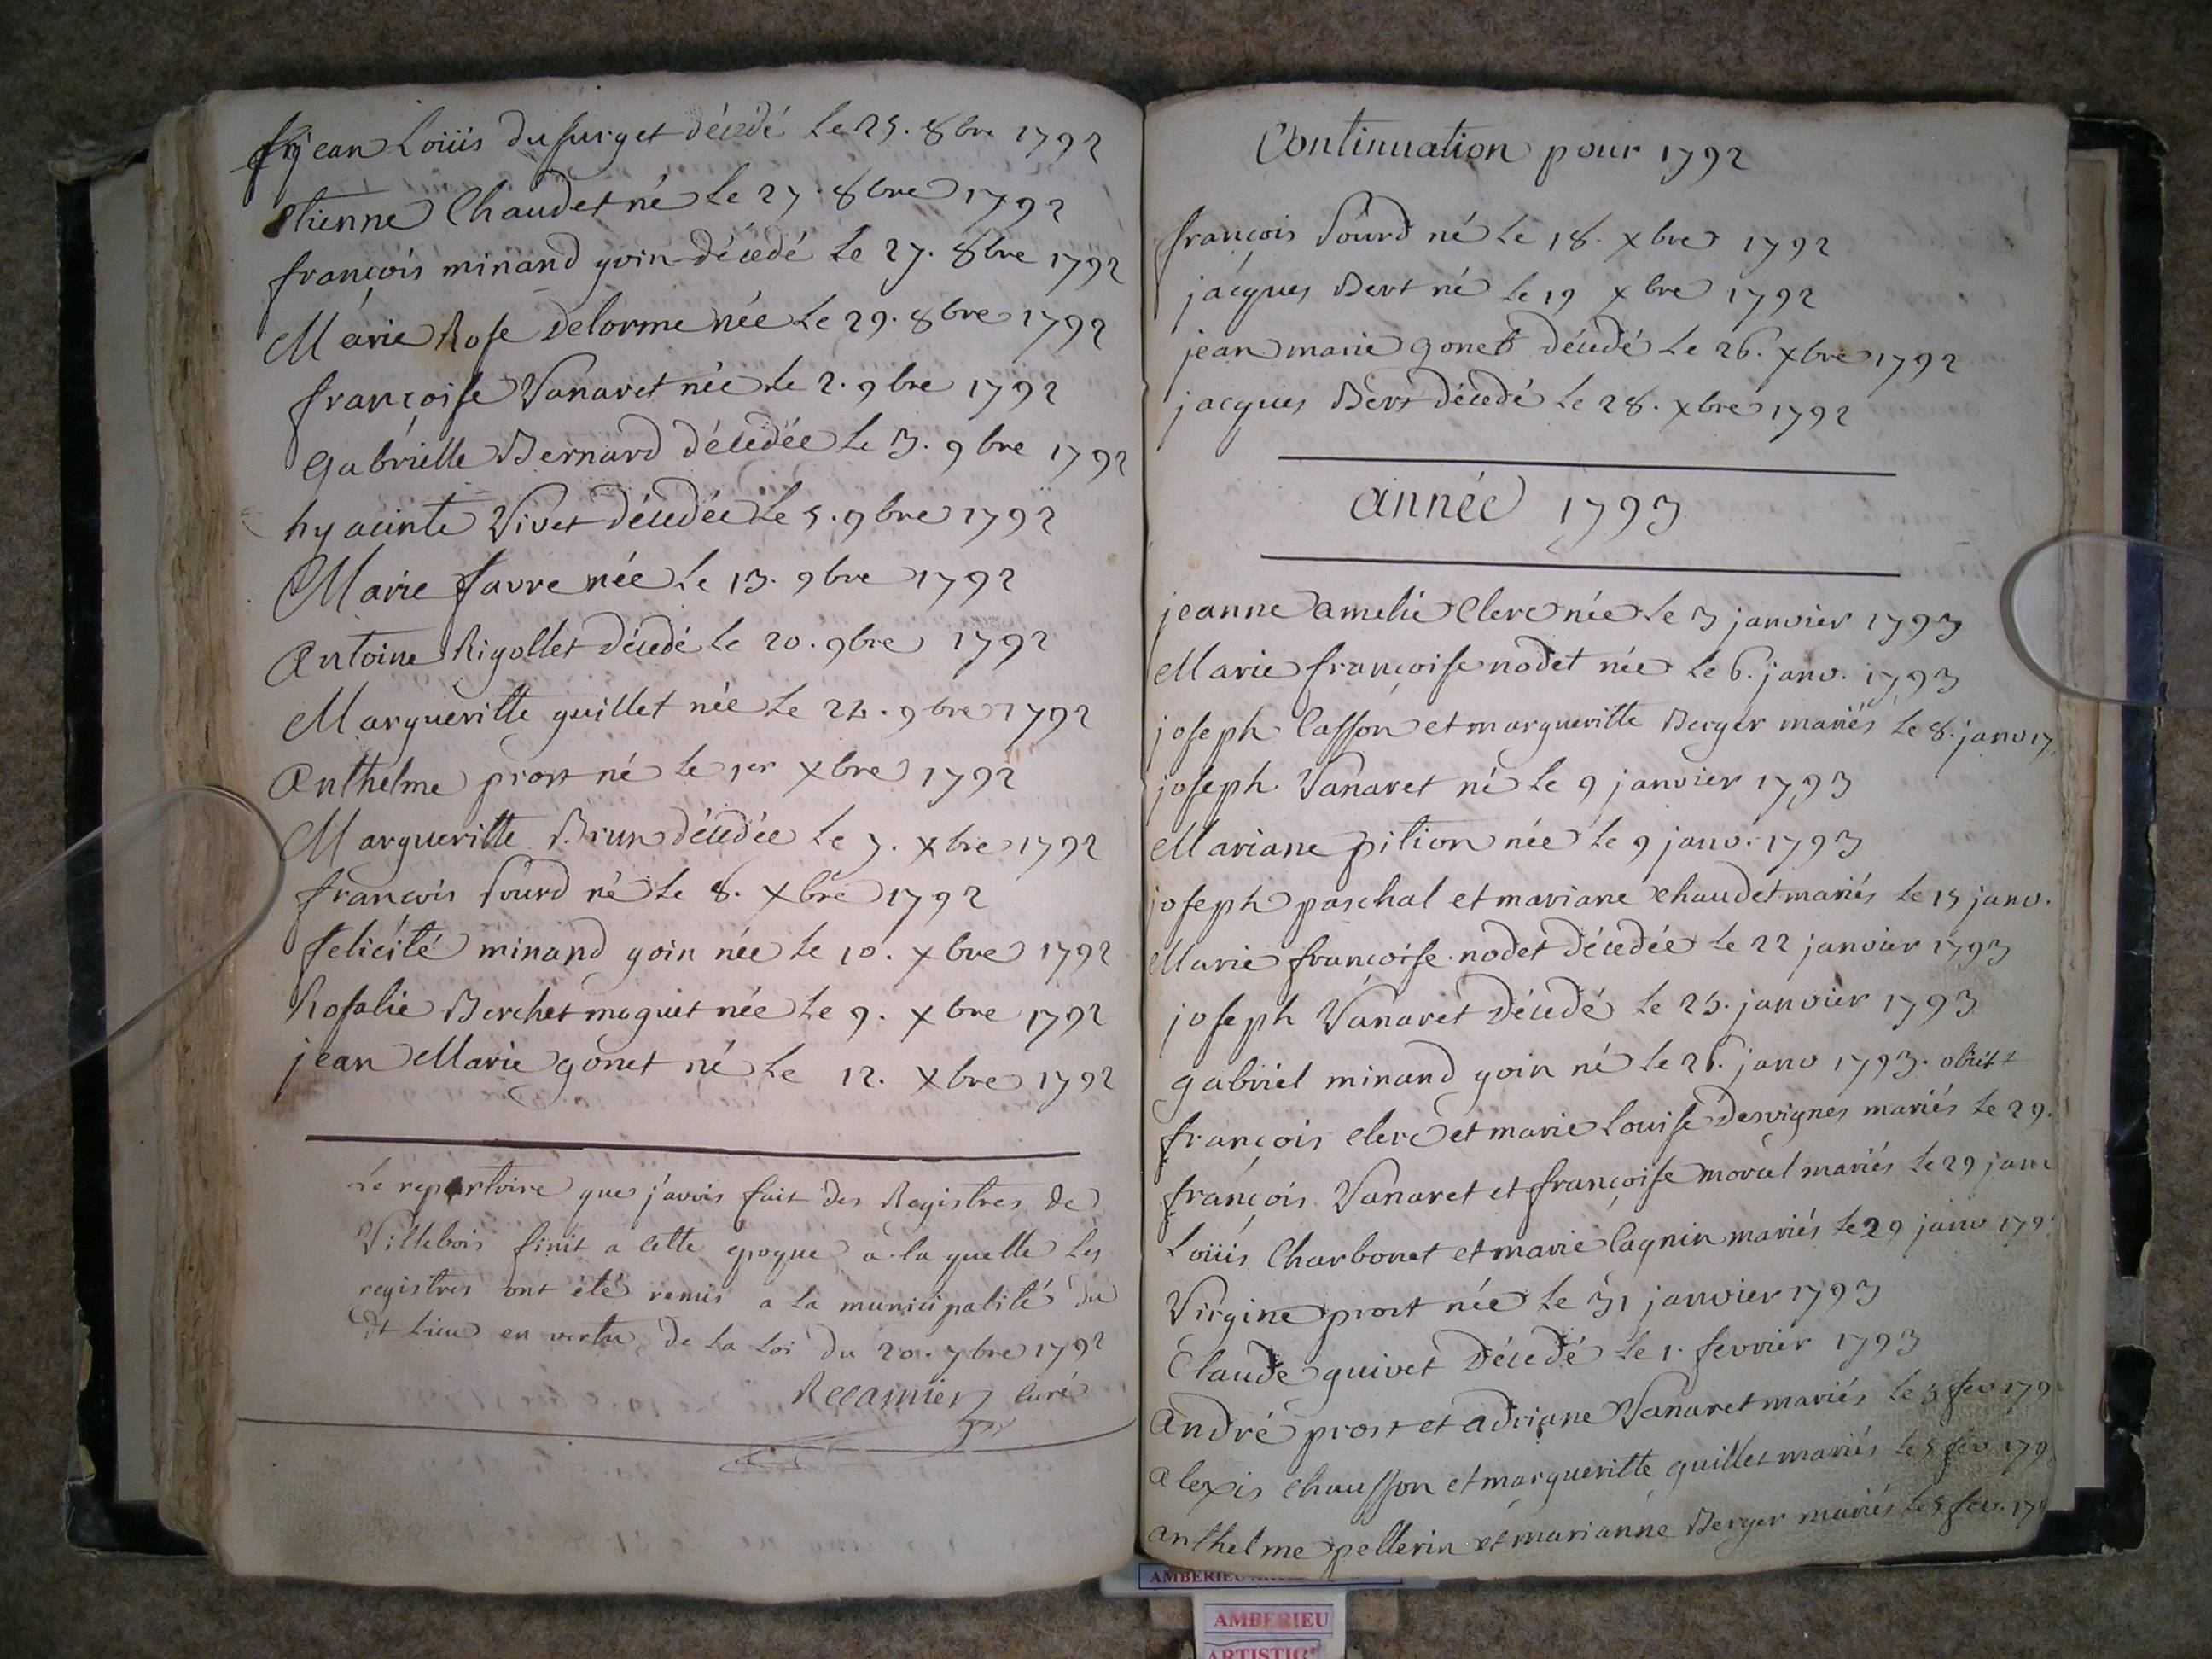 jean Loüis dusurget décédé le 25. 8bre 1792
etienne Chaudet né le 27. 8bre 1792
françois minand goin décédé le 27. 8bre 1792
Marie Rose Delorme née le 29. 8bre 1792
françoise Vanaret née le 2. 9bre 1792
Gabrielle Bernard décédée le 3. 9bre 1792
hyacinte Vivet décédée le 5. 9bre 1792
Marie favre née le 13. 9bre 1792
Antoine Rigollet décédé le 20. 9bre 1792
Margueritte guillet née le 24. 9bre 1792
Anthelme prost né le 1er xbre 1792
Margueritte Brun décédée le 7. xbre 1792
françois Sourd né le 8. xbre 1792
felicité minand goin née le 10. xbre 1792
Rosalie Berchet maguet née le 9. xbre 1792
jean Marie gonet né le 12. xbre 1792
Le repertoire que j'avois fait des Registres de
Villebois finit a cette epoque a la quelle les
registres ont été remis a la municipalité du
dt lieu en vertu de la Loi du 20. 7bre 1792
Recamier Curé
Continuation pour 1792
françois Sourd né le 18. xbre 1792
jacques Bert né le 19 xbre 1792
jean marie gonet décédé le 26. xbre 1792
jacques Bert décédé le 28. xbre 1792
année 1793
jeanne amelie Clerc née le 3 janvier 1793
Marie françoise nodet née le 6. janv. 1793
joseph Casson et margueritte Berger mariés le 8. janv 17
joseph Vanaret né le 9 janvier 1793
Mariane pition née le 9 janv. 1793
joseph paschal et mariane chaudet mariés le 15 janv.
Marie françoise nodet décédée le 22 janvier 1793
joseph Vanaret décédé le 25. janvier 1793
gabriel minand goin né le 26. janv 1793. obiit +
françois clerc et marie Louise desvignes mariés le 29.
françois Vanaret et françoise morael mariés le 29 janv
Loüis Charbonet et marie Cagnin mariés le 29 janv 179
Virgine prost née le 31 janvier 1793
Claude guivet décédé le 1. fevrier 1793
André prost et adriane Vanaret mariés le 5 fev 179
alexis chausson et margueritte guillet mariés le 5 fev 179
anthelme pellerin et marianne Berger mariés le 5 fev. 179
AMBERIEU
AMBERIEU
ARTISTIQ